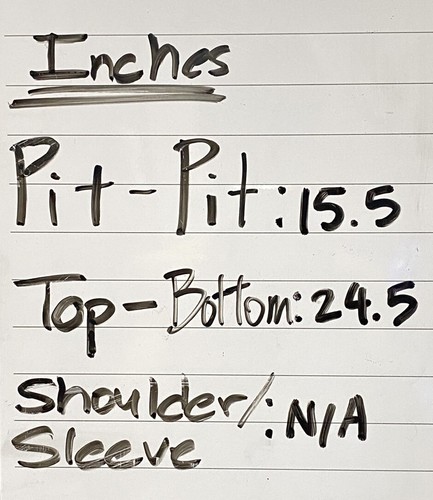 Inches
Pit-Pit:15.5
Top-Bottom:24.5
Shoulder/:N/A
Sleeve